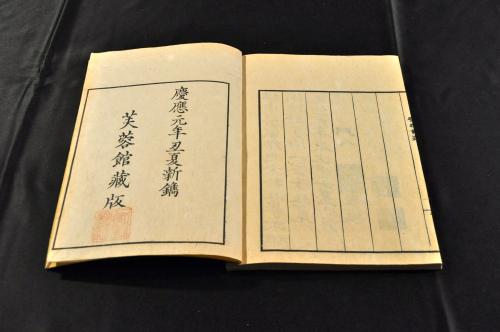 慶應元年丑夏新鐫
芙蓉館藏版